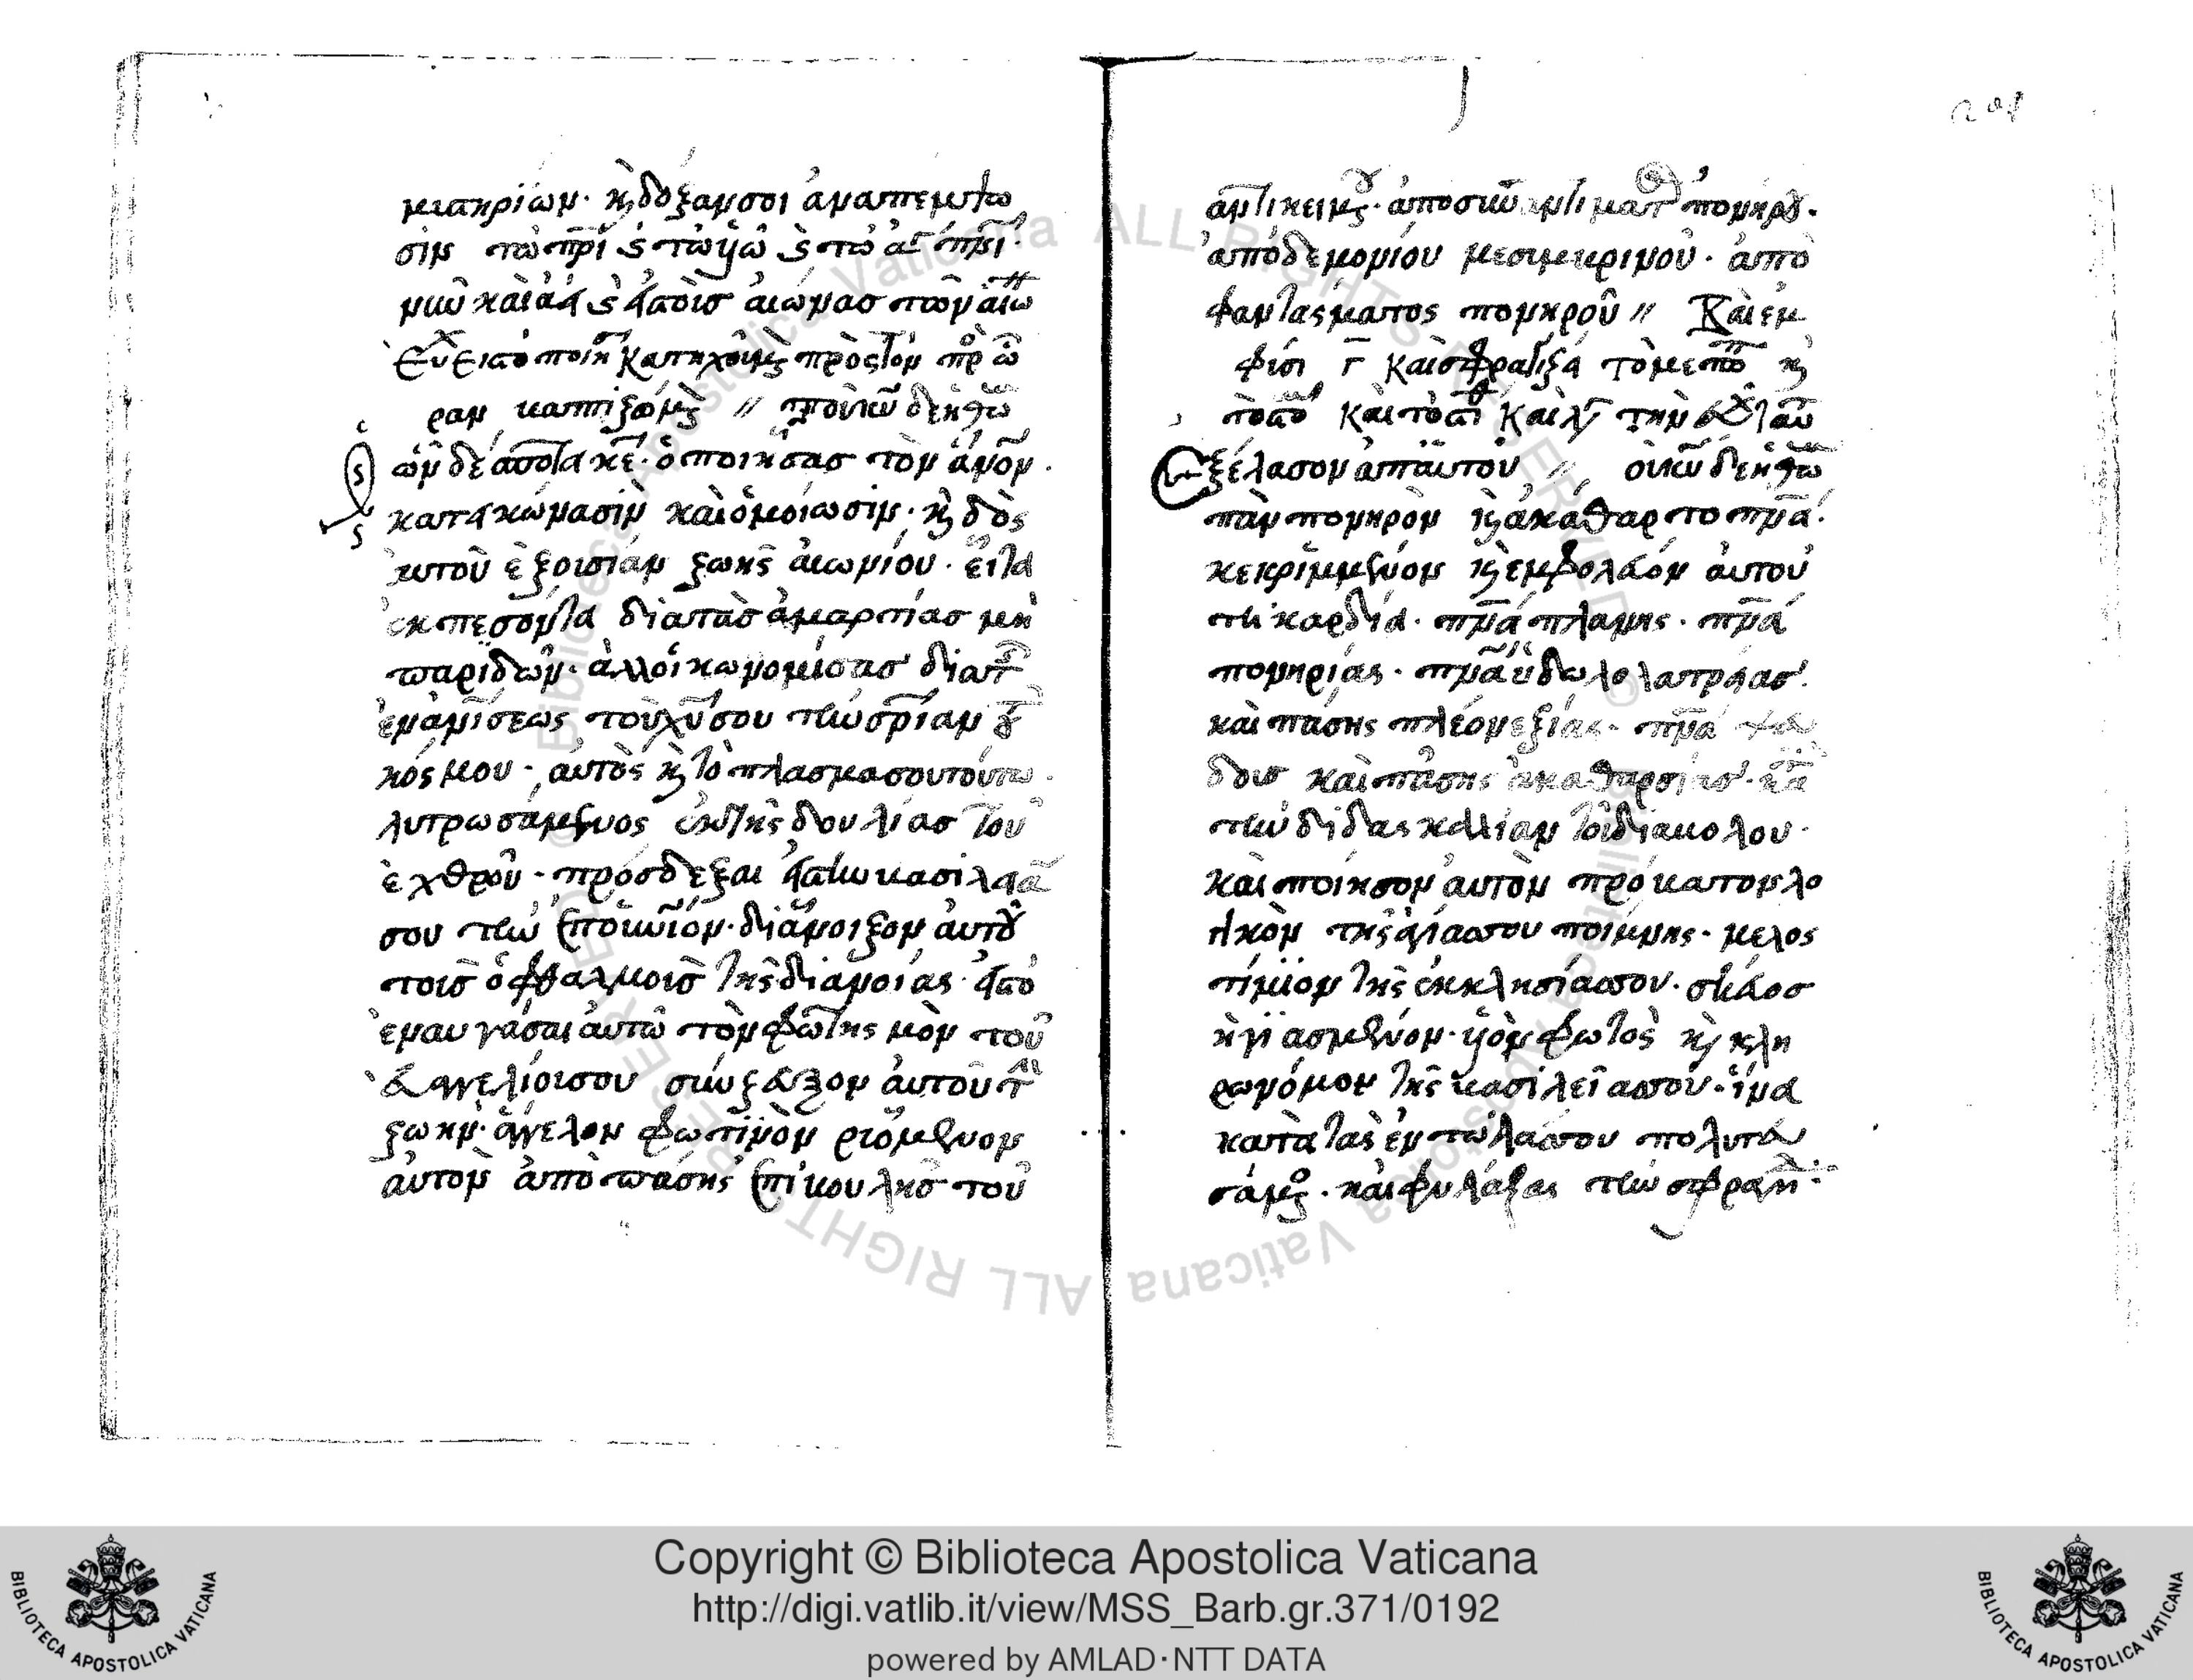 μιστηρίων· κ̀ δόξαν σοι ἀναπέμπω
σιν τῶ πρὶ ϛ τῶ ὑῶ ϛ τῶ ἁγ πνι·
νῦν καὶ ἀεὶ ϛ εἰς τοὺς αἰώνας τῶν αἰω
Εὐχ εἰς τὸ ποιῆ κατηχούμε πρὸς τὸν πρ ὦ
ραν βαπτιζόμε // τοῦ κυ δεηθῶ
ὡν δέσποτα κε· ὁ ποιήσας τὸν ἄνον·
κατεικώνασὶν καὶ ὁμοίωσιν· κ̀ δὸς
αυτοῦ ἐξουσίαν ζωῆς αἰωνίου· εἶτα
ἐκπεσόντα διὰ τῆς ἁμαρτίας μὴ
παριδῶν· ἀλλοἰκωνομίσας δια τ
ἐνανίσεως τοῦ χυ σου τὴν σρίαν τοῦ
κόσμου· αὐτὸς κ̀ τὸ πλάσμα σου τούτω
λυτρωσάμενος ἐκ τῆς δουλίας τοῦ
ἐχθροῦ· πρόσδεξαι εἰς τὴν βασιλεία
σου τὴν ἐποὐνιον· διάνοιξον αὐτοῦ
τοῖς ὀφθαλμοῖς τῆς διανοίας· εἰς τὸ
ἐναυγάσαι αὐτῶ τὸν φωτισμὸν τοῦ
εὐαγγελίου σου σύνζευξον αὐτοῦ τ
ζωὴν· ἄγγελον φωτινὸν ριόμενον
αὐτὸν ἀπὸ πάσης ἐπιβουλῆς τοῦ
ἀντικειμ· ἀπὸ συναντιματ πονηροῦ·
ἀπὸ δεμονίου μεσιμβρινοῦ· ἀπὸ
φαντάσματος πονηροῦ // Καὶ ἐμ
φισὶ γ καὶ σφραγίζει τὸ μετωπ κ̀
τὸ στο καὶ τὸ στη καὶ λέγ τὴν εὐχ ταυ
Ἐξέλασον ἀπαὐτοῦ // τοῦ κυ δεηθῶ
πᾶν πονηρὸν κ̀ ἀκάθαρτο πνα·
κεκριμμένον κ̀ ἐμφολεύον αὐτοῦ
τῆ καρδία· πνα πλάνης· πνα
πονηρίας· πνα εἰδωλολατρείας·
καὶ πάσης πλεονεξίας· πνα ψεύ
δους καὶ πάσης ἀκαθαρσίας· κα
τὴν διδασκαλίαν τοῦ διαβόλου·
καὶ ποίησον αὐτὸν πρόβατον λο
γικὸν τῆς ἁγίας σου ποίμνης· μέλος
τίμιον τῆς ἐκκλησίας σου· σκεύος
ἡγιασμένον· υἱὸν φωτὸς κ̀ κλη
ρωνόμον τῆς βασιλείας σου· ἵνα
κατὰ τὰς ἐντωλάς σου πολυτευ
σάμε· καὶ φυλάξας τὴν σφραγι·
Copyright © Biblioteca Apostolica Vaticana
http://digi.vatlib.it/view/MSS_Barb.gr.371/0192
powered by AMLAD·NTT DATA